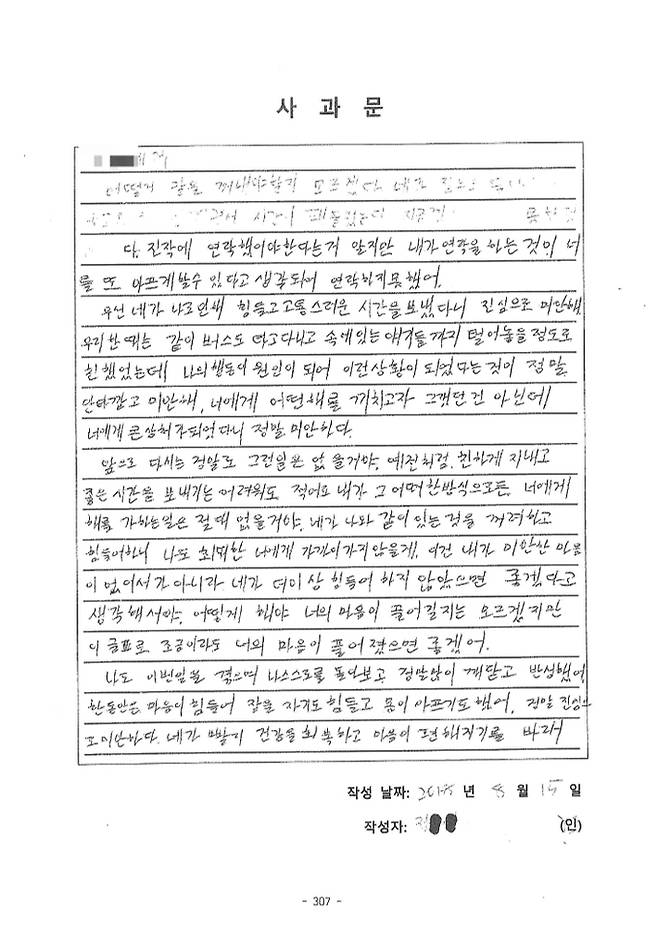 사 과 문
에게
어떻게 말을 꺼내야할지 모르겠다
시간이
다. 진작에 연락했어야한다는거 알지만 내가 연락을 하는 것이 너
를 또 아프게 할수 있다고 생각되어 연락하지못했어.
우선 네가 나로인해 힘들고고통스러운 시간을 보냈다니 진심으로 미안해.
우리 한때는 같이 버스도 타고다니고 속에있는 얘기들까지 털어놓을 정도로
친했었는데 나의행동이 원인이 되어 이런상황이 되었다는것이 정말
안타깝고 미안해. 너에게 어떤해를 끼치고자 그랬던 건 아닌데
너에게 큰상처가되었다니 정말 미안하다.
앞으로 다시는 정말로 그런일은 없을거야. 예전처럼 친하게 지내고
좋은 시간을 보내기는 어려워도 적어도 내가 그 어떠한방식으로든 너에게
해를 가하는일은 절대 없을거야. 네가 나와 같이 있는 것을 꺼려하고
힘들어하니 나도 최대한 너에게 가까이가지않을게. 이건 내가 미안한 마음
이 없어서가 아니라 네가 더이상 힘들어 하지 않았으면 좋겠다고
생각해서야. 어떻게 해야 너의 마음이 풀어질지는 모르겠지만
이 글로 조금이라도 너의 마음이 풀어졌으면 좋겠어.
나도 이번일을 겪으며 나스스로를 돌아보고 정말많이 깨닫고 반성했어
한동안은 마음이 힘들어 잠을 자기도 힘들고 몸이 아프기도했어. 정말 진심으
로 미안하다. 네가 빨리 건강을 회복하고 마음이 편해지기를 바라
작성 날짜: 2018 년 8 월 15 일
작성자: (인)
- 307 -